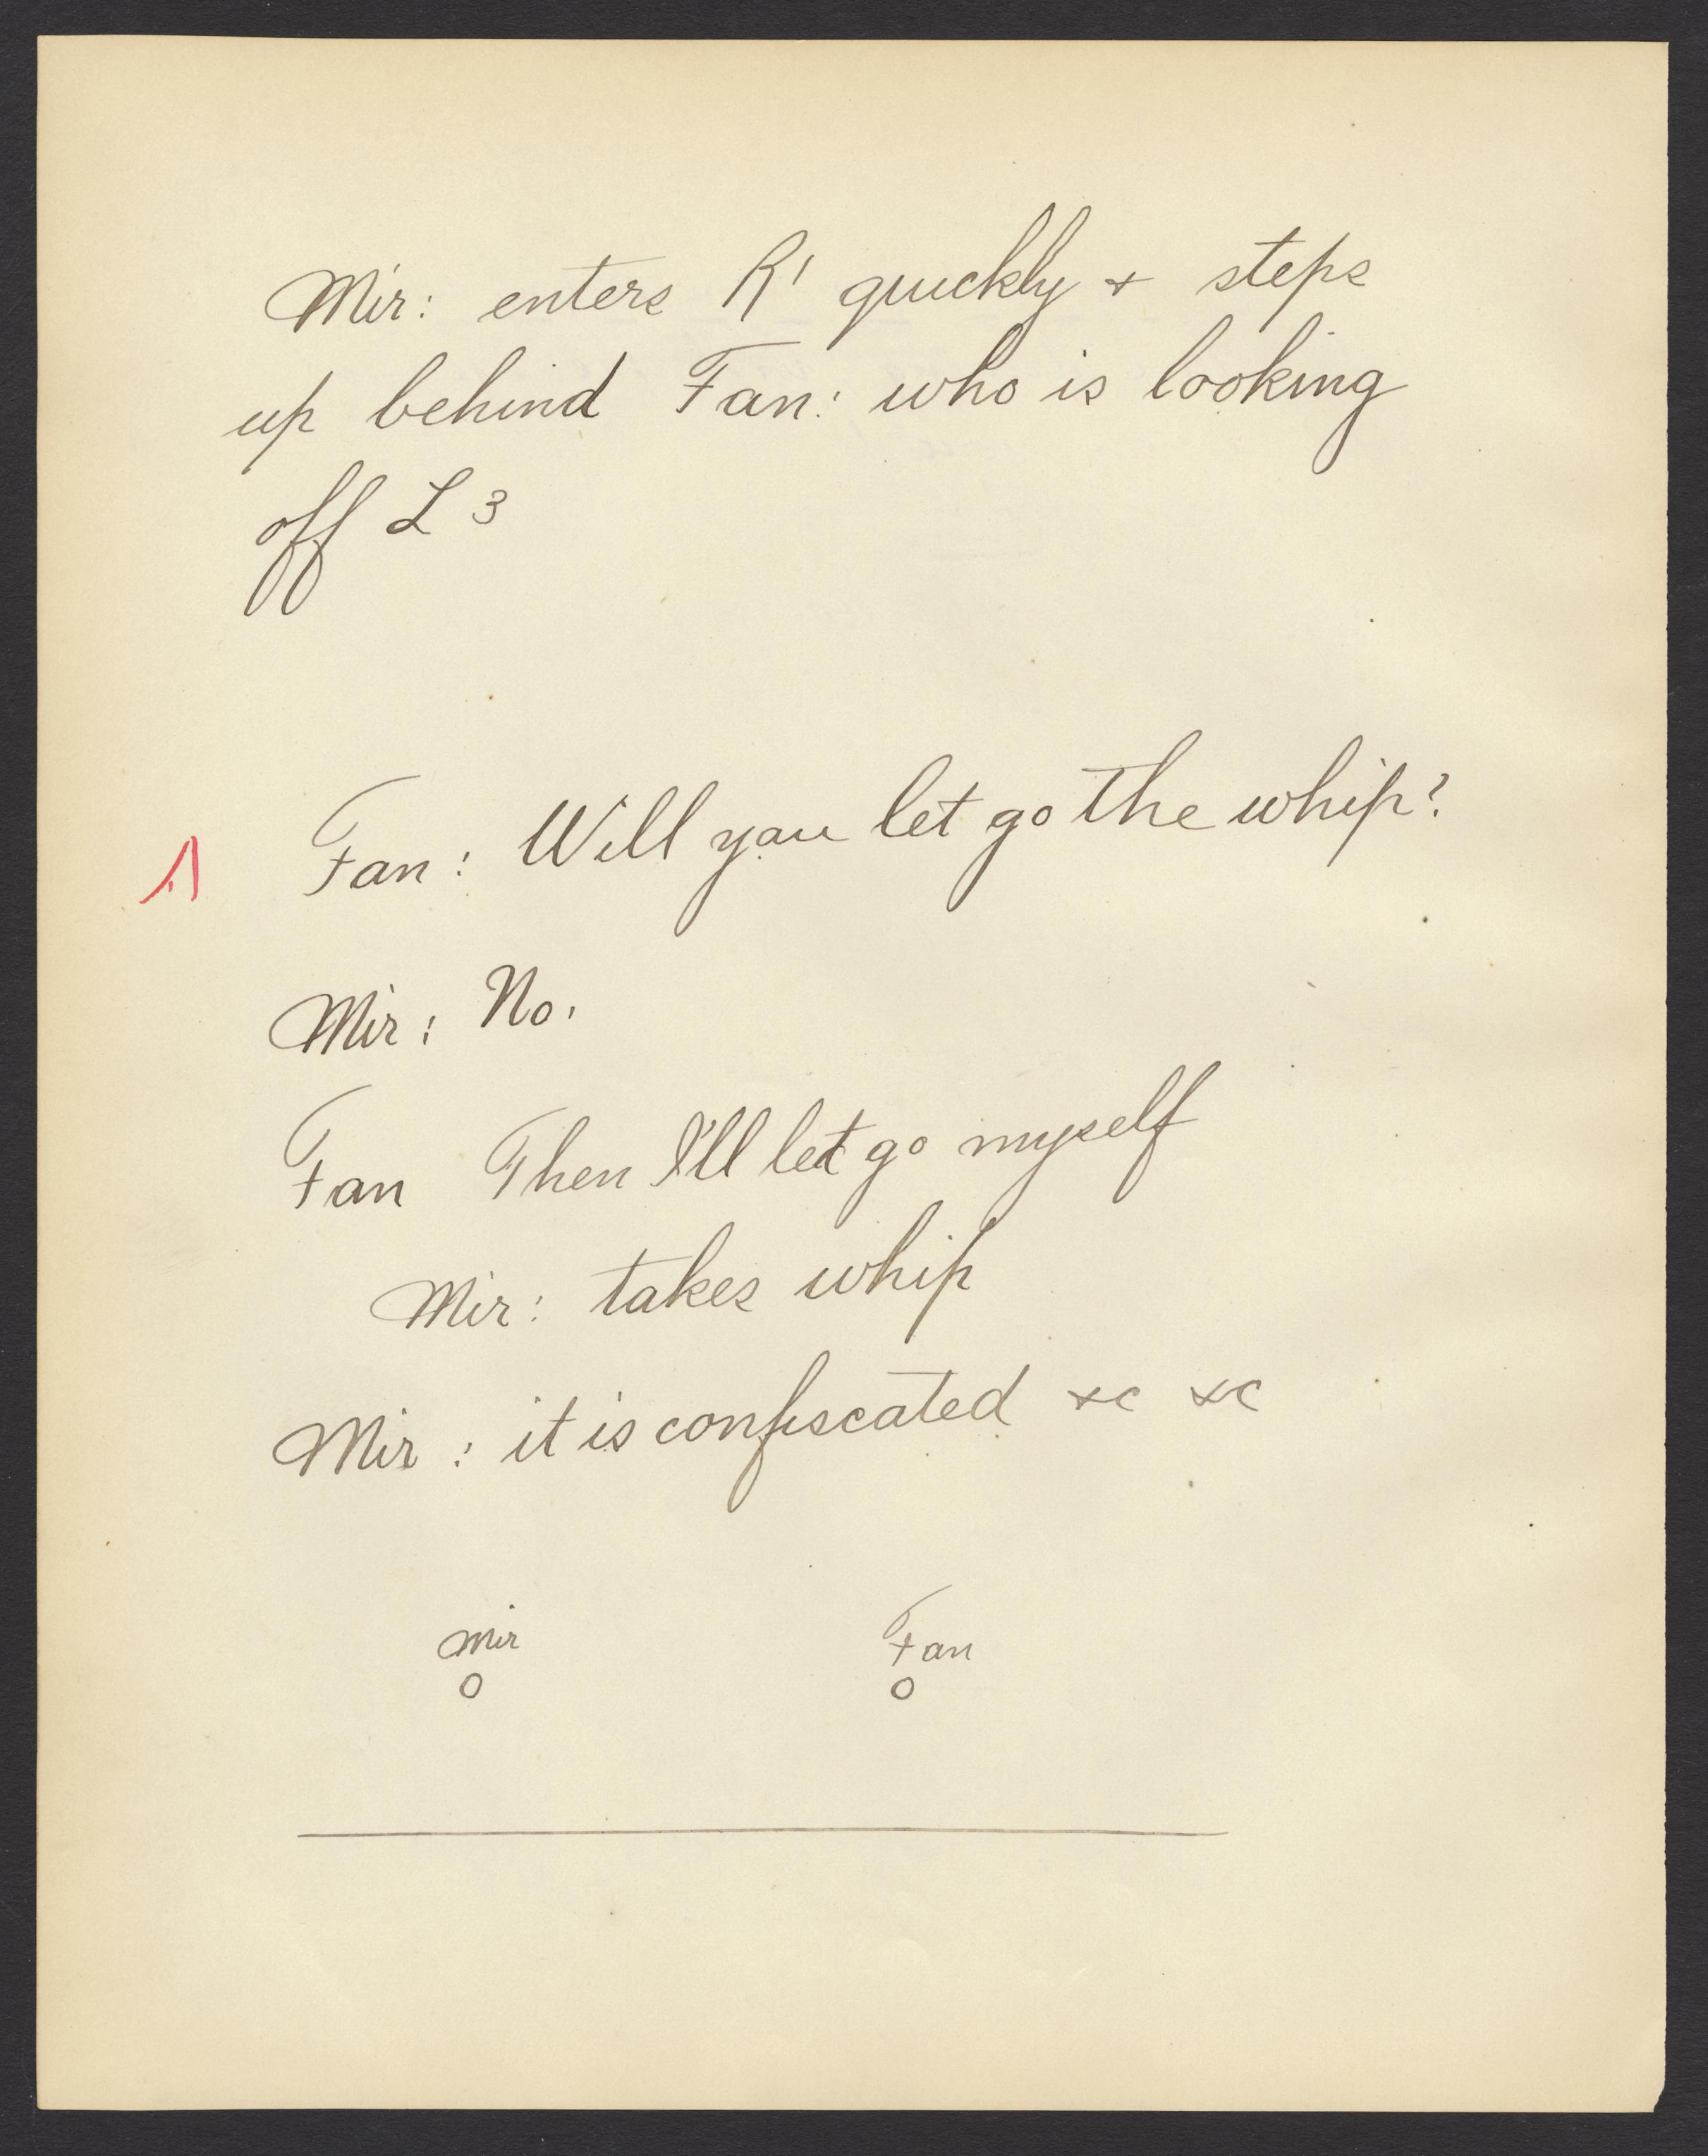 Mir: enters R1 quickly + steps
up behind Fan: who is looking
off L 3
1 Fan: Will you let go the whip?
Mir: No.
Fan Then I'll let go myself
Mir: takes whip
Mir: it is confiscated &c &c
Mir Fan